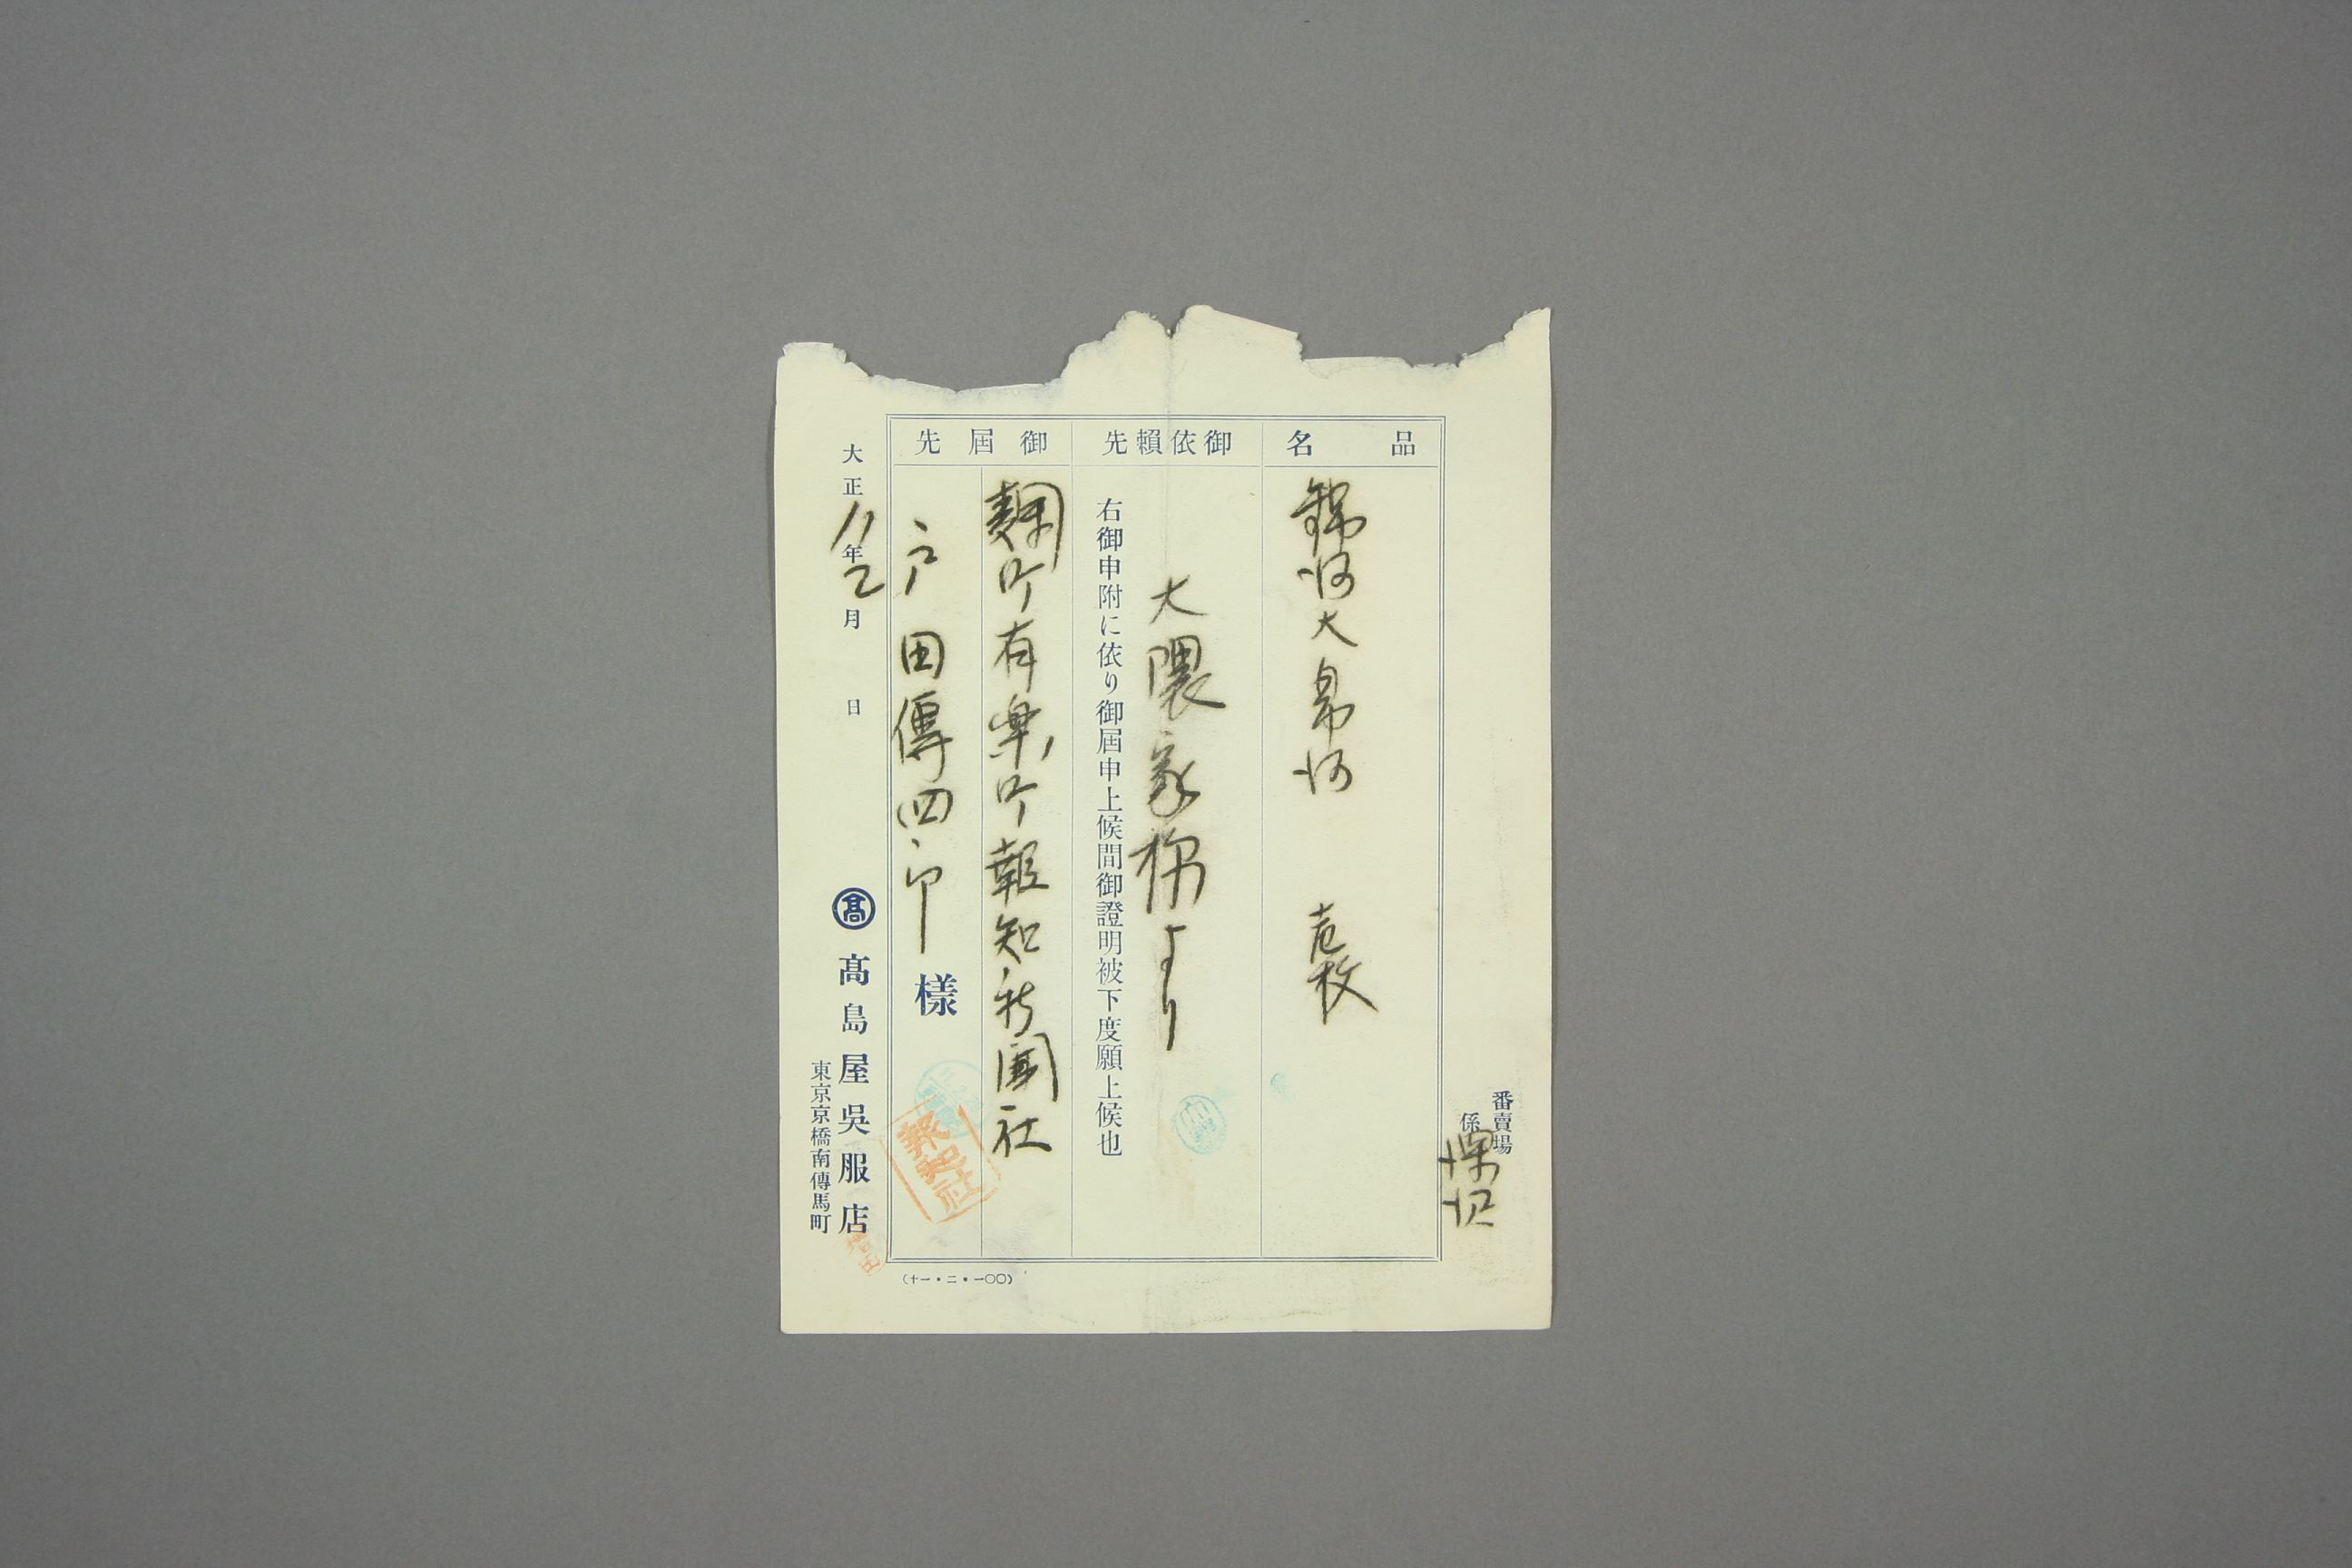 番賣場
係
品名
錦河大帛河 壱枚
御依賴先
大隈家様より
右御申附に依り御屆申上候間御證明被下度願上候也
御屆先
麹町有楽町報知新聞社
戸田傳四郎様
報知社
大正11年2月 日
髙
髙島屋吳服店
東京京橋南傳馬町
(十一・二・一〇〇)